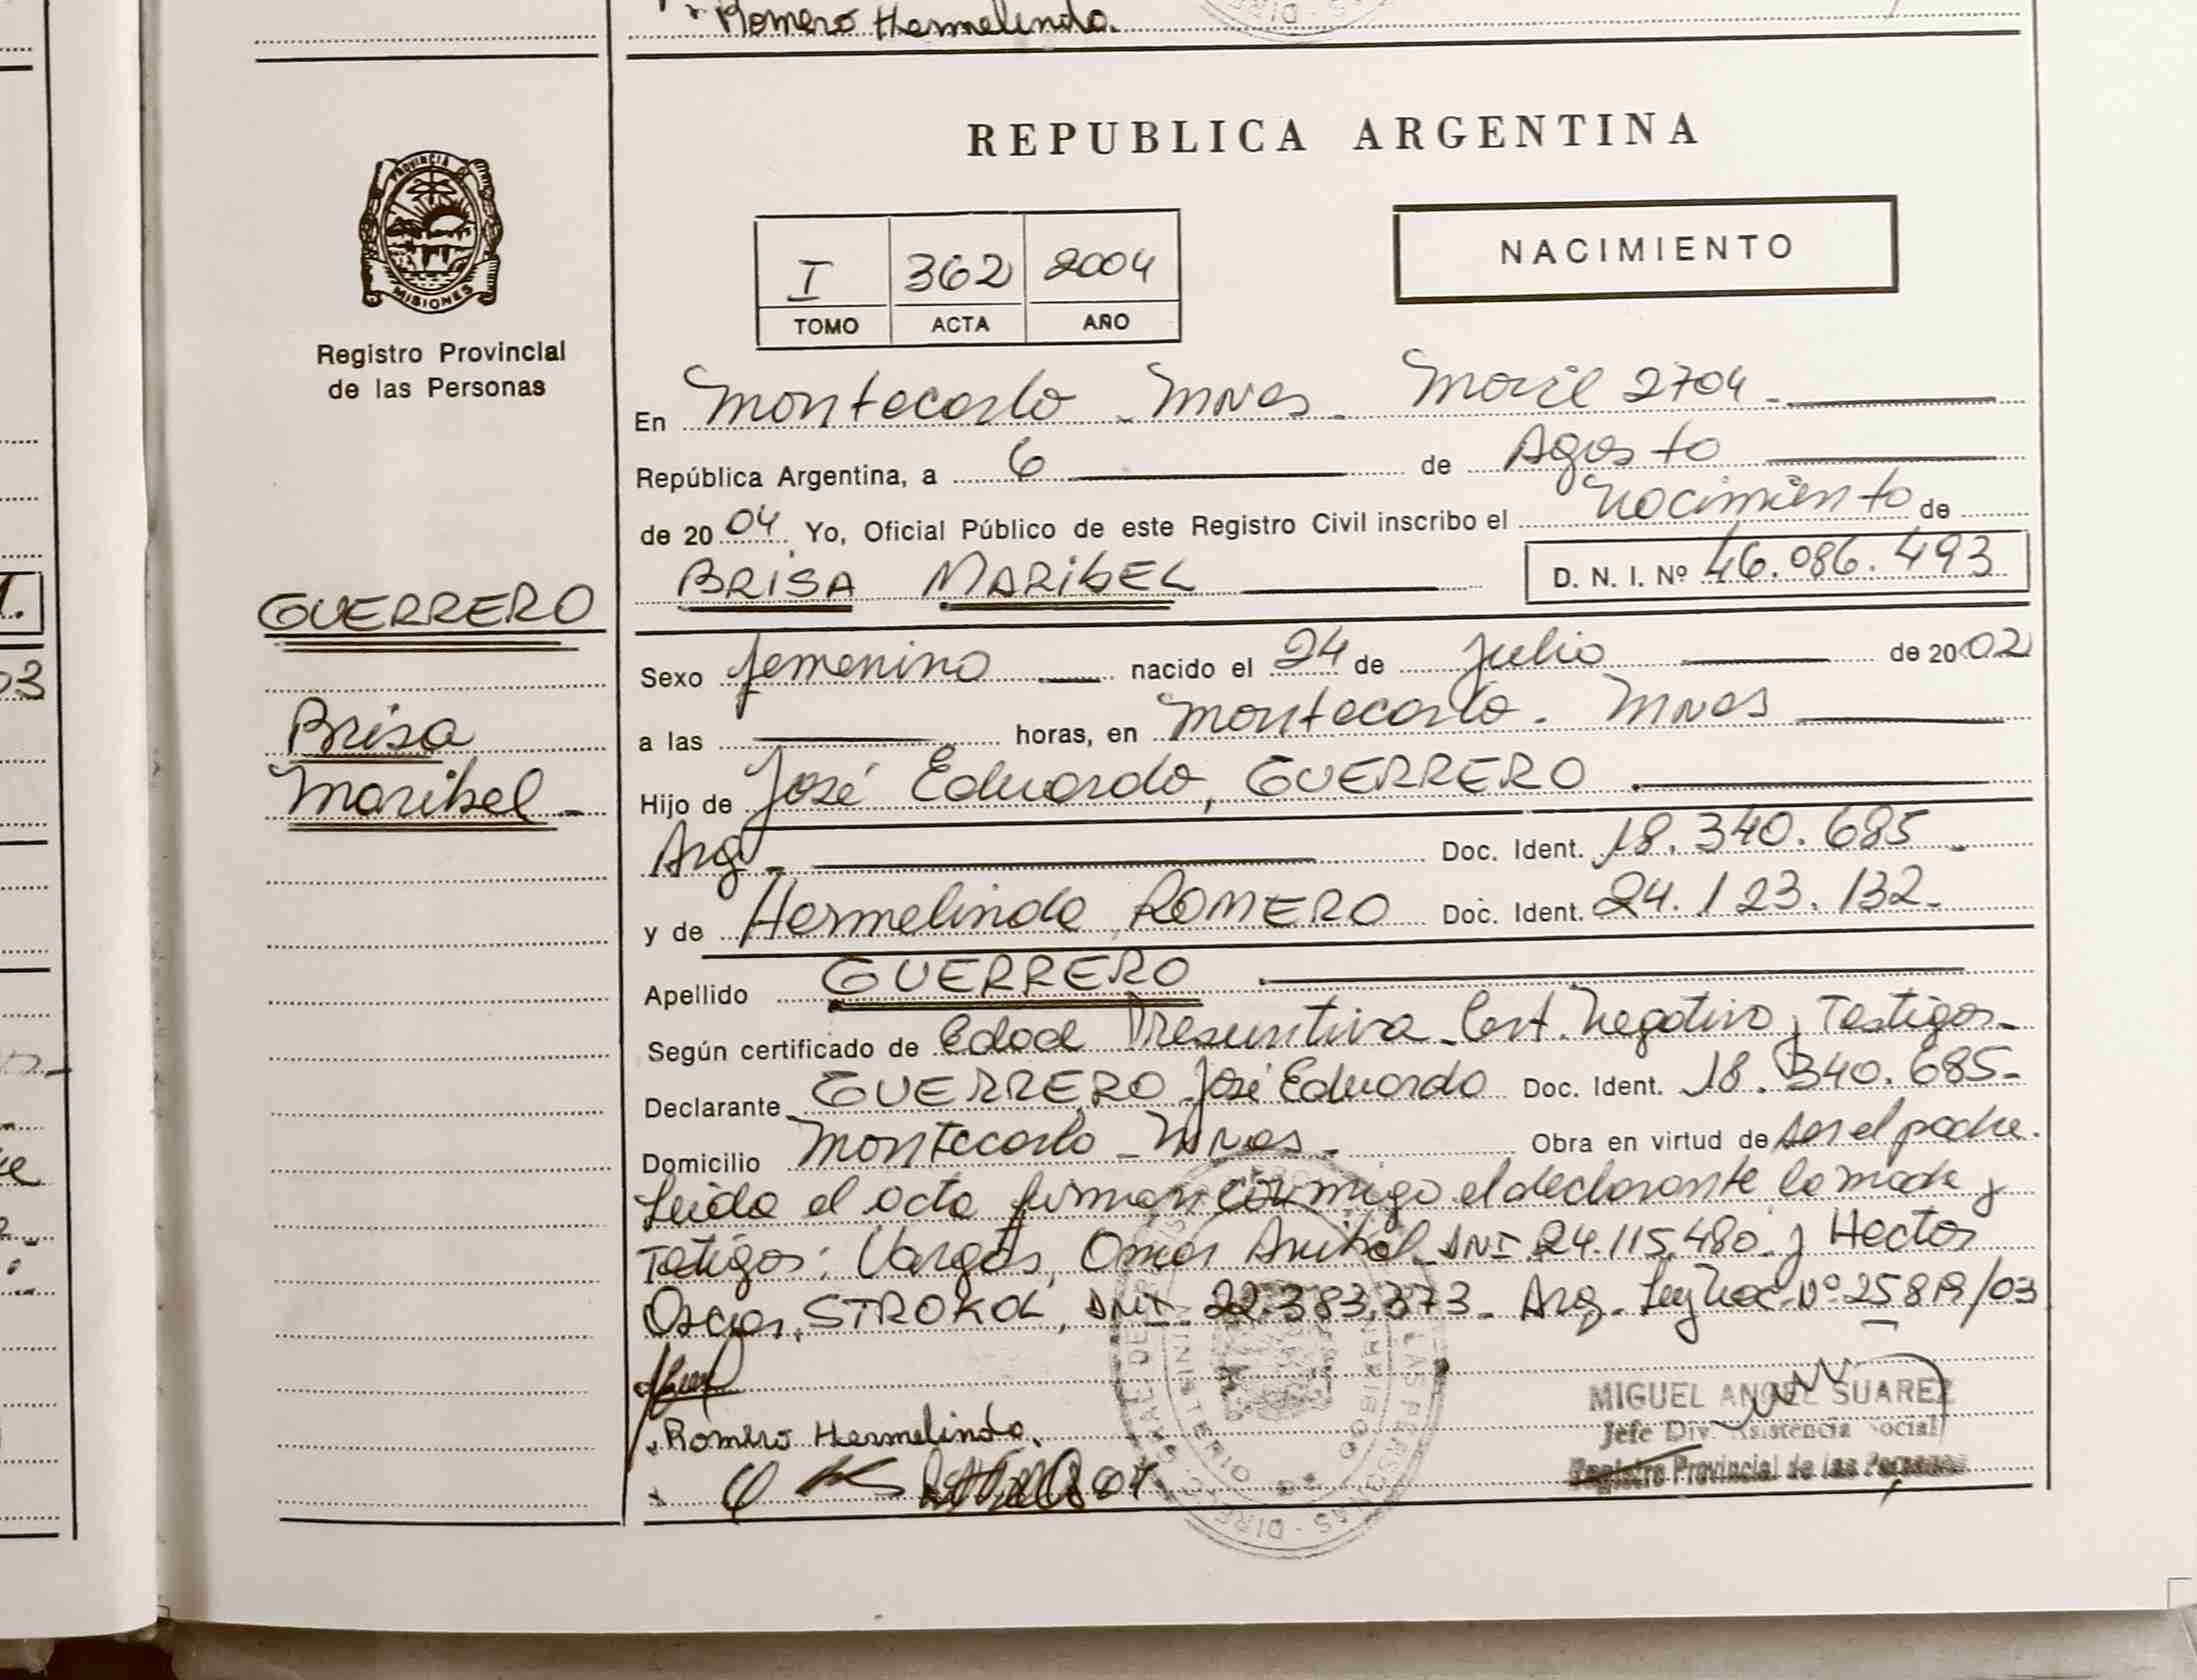 Romero Hermelinda.
REPUBLICA ARGENTINA
PROVINCIA
MISIONES
Registro Provincial
de las Personas
I 362 2004
TOMO ACTA AÑO
NACIMIENTO
En Montecarlo - Mnes. Movil 2704 -
República Argentina, a 6 de Agosto
de 2004. Yo, Oficial Público de este Registro Civil inscribo el Nacimiento de
BRISA MARIBEL D. N. I. Nº 46.086.493
GUERRERO
Brisa
Maribel -
Sexo femenino nacido el 24 de Julio de 2002
a las horas, en Montecarlo - Mnes
Hijo de José Eduardo, GUERRERO
Arg - Doc. Ident. 18.340.685 -
y de Hermelinda ROMERO Doc. Ident. 24.123.132-
Apellido GUERRERO
Según certificado de Edad Presuntiva - Cert. Negativo y Testigos -
Declarante GUERRERO José Eduardo Doc. Ident. 18.340.685-
Domicilio Montecarlo - Mnes - Obra en virtud de ser el padre.
Leida el acta firman conmigo el declarante la madre y
Testigos: Vargas, Omar Anibal DNI 24.115.480 y Hector
Oscar, STROKOL, DNI 22.383.373 - Arg - Ley Nac. Nº 25819/03
Romero Hermelinda.
MIGUEL ANGEL SUAREZ
Jefe Div. Asistencia Social
Registro Provincial de las Personas